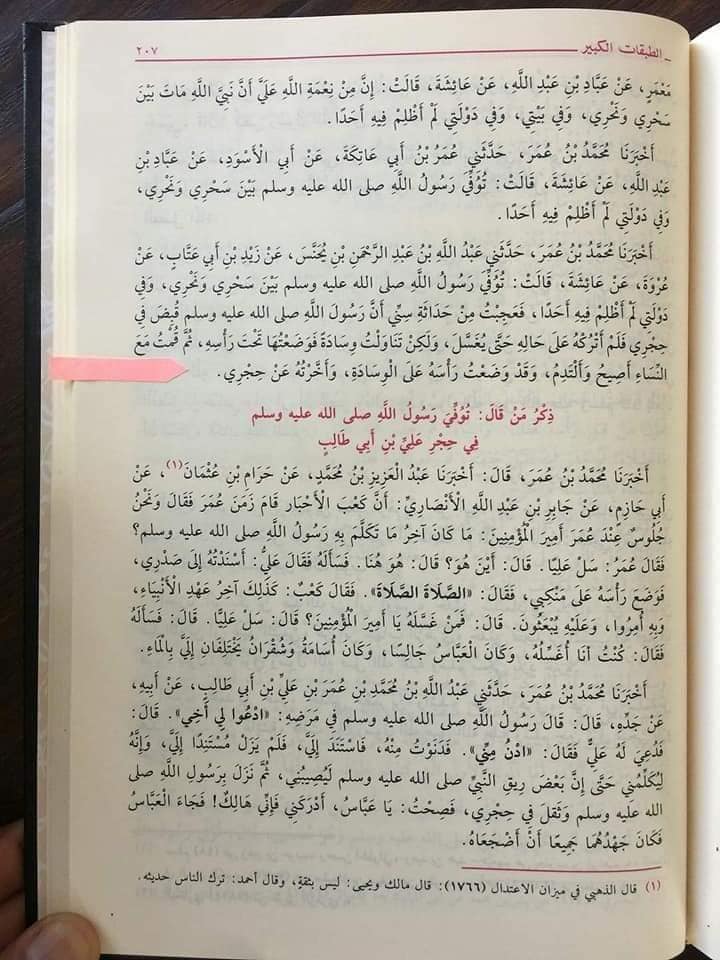 الطبقات الكبير ٢٠٧
مَعْمَرٍ، عَنْ عَبَّادِ بْنِ عَبْدِ اللَّهِ، عَنْ عَائِشَةَ، قَالَتْ: إِنَّ مِنْ نِعْمَةِ اللَّهِ عَلَيَّ أَنَّ نَبِيَّ اللَّهِ مَاتَ بَيْنَ
سَحْرِي وَنَحْرِي، وَفِي بَيْتِي، وَفِي دَوْلَتِي لَمْ أَظْلِمْ فِيهِ أَحَدًا.
أَخْبَرَنَا مُحَمَّدُ بْنُ عُمَرَ، حَدَّثَنِي عُمَرُ بْنُ أَبِي عَاتِكَةَ، عَنْ أَبِي الْأَسْوَدِ، عَنْ عَبَّادِ بْنِ
عَبْدِ اللَّهِ، عَنْ عَائِشَةَ، قَالَتْ: تُوُفِّيَ رَسُولُ اللَّهِ صلى الله عليه وسلم بَيْنَ سَحْرِي وَنَحْرِي،
وَفِي دَوْلَتِي لَمْ أَظْلِمْ فِيهِ أَحَدًا.
أَخْبَرَنَا مُحَمَّدُ بْنُ عُمَرَ، حَدَّثَنِي عَبْدُ اللَّهِ بْنُ عَبْدِ الرَّحْمَنِ بْنِ يُحَنَّسَ، عَنْ زَيْدِ بْنِ أَبِي عَتَّابٍ، عَنْ
عُرْوَةَ، عَنْ عَائِشَةَ، قَالَتْ: تُوُفِّيَ رَسُولُ اللَّهِ صلى الله عليه وسلم بَيْنَ سَحْرِي وَنَحْرِي، وَفِي
دَوْلَتِي لَمْ أَظْلِمْ فِيهِ أَحَدًا، فَعَجِبْتُ مِنْ حَدَاثَةِ سِنِّي أَنَّ رَسُولَ اللَّهِ صلى الله عليه وسلم قُبِضَ فِي
حِجْرِي فَلَمْ أَتْرُكْهُ عَلَى حَالِهِ حَتَّى يُغَسَّلَ، وَلَكِنْ تَنَاوَلْتُ وِسَادَةً فَوَضَعْتُهَا تَحْتَ رَأْسِهِ، ثُمَّ قُمْتُ مَعَ
النِّسَاءِ أَصِيحُ وَأَلْتَدِمُ، وَقَدْ وَضَعْتُ رَأْسَهُ عَلَى الْوِسَادَةِ، وَأَخَّرْتُهُ عَنْ حِجْرِي.
ذِكْرُ مَنْ قَالَ: تُوُفِّيَ رَسُولُ اللَّهِ صلى الله عليه وسلم
فِي حِجْرِ عَلِيِّ بْنِ أَبِي طَالِبٍ
أَخْبَرَنَا مُحَمَّدُ بْنُ عُمَرَ، قَالَ: أَخْبَرَنَا عَبْدُ الْعَزِيزِ بْنُ مُحَمَّدٍ، عَنْ حَرَامِ بْنِ عُثْمَانَ(١)، عَنْ
أَبِي حَازِمٍ، عَنْ جَابِرِ بْنِ عَبْدِ اللَّهِ الْأَنْصَارِيِّ: أَنَّ كَعْبَ الْأَحْبَارِ قَامَ زَمَنَ عُمَرَ فَقَالَ وَنَحْنُ
جُلُوسٌ عِنْدَ عُمَرَ أَمِيرِ الْمُؤْمِنِينَ: مَا كَانَ آخِرُ مَا تَكَلَّمَ بِهِ رَسُولُ اللَّهِ صلى الله عليه وسلم؟
فَقَالَ عُمَرُ: سَلْ عَلِيًّا. قَالَ: أَيْنَ هُوَ؟ قَالَ: هُوَ هُنَا. فَسَأَلَهُ فَقَالَ عَلِيٌّ: أَسْنَدْتُهُ إِلَى صَدْرِي،
فَوَضَعَ رَأْسَهُ عَلَى مَنْكِبِي، فَقَالَ: «الصَّلَاةَ الصَّلَاةَ». فَقَالَ كَعْبٌ: كَذَلِكَ آخِرُ عَهْدِ الْأَنْبِيَاءِ،
وَبِهِ أُمِرُوا، وَعَلَيْهِ يُبْعَثُونَ. قَالَ: فَمَنْ غَسَّلَهُ يَا أَمِيرَ الْمُؤْمِنِينَ؟ قَالَ: سَلْ عَلِيًّا. قَالَ: فَسَأَلَهُ
فَقَالَ: كُنْتُ أَنَا أُغَسِّلُهُ، وَكَانَ الْعَبَّاسُ جَالِسًا، وَكَانَ أُسَامَةُ وَشُقْرَانُ يَخْتَلِفَانِ إِلَيَّ بِالْمَاءِ.
أَخْبَرَنَا مُحَمَّدُ بْنُ عُمَرَ، حَدَّثَنِي عَبْدُ اللَّهِ بْنُ مُحَمَّدِ بْنِ عُمَرَ بْنِ عَلِيِّ بْنِ أَبِي طَالِبٍ، عَنْ أَبِيهِ،
عَنْ جَدِّهِ، قَالَ: قَالَ رَسُولُ اللَّهِ صلى الله عليه وسلم فِي مَرَضِهِ: «ادْعُوا لِي أَخِي». قَالَ:
فَدُعِيَ لَهُ عَلِيٌّ فَقَالَ: «ادْنُ مِنِّي». فَدَنَوْتُ مِنْهُ، فَاسْتَنَدَ إِلَيَّ، فَلَمْ يَزَلْ مُسْتَنِدًا إِلَيَّ، وَإِنَّهُ
لِيُكَلِّمُنِي حَتَّى إِنَّ بَعْضَ رِيقِ النَّبِيِّ صلى الله عليه وسلم لَيُصِيبُنِي، ثُمَّ نَزَلَ بِرَسُولِ اللَّهِ صلى
الله عليه وسلم وَثَقُلَ فِي حِجْرِي، فَصِحْتُ: يَا عَبَّاسُ، أَدْرِكْنِي فَإِنِّي هَالِكٌ! فَجَاءَ الْعَبَّاسُ
فَكَانَ جَهْدُهُمَا جَمِيعًا أَنْ أَضْجَعَاهُ.
(١) قال الذهبي في ميزان الاعتدال (١٧٦٦): قال مالك ويحيى: ليس بثقةٍ، وقال أحمد: ترك الناس حديثه.